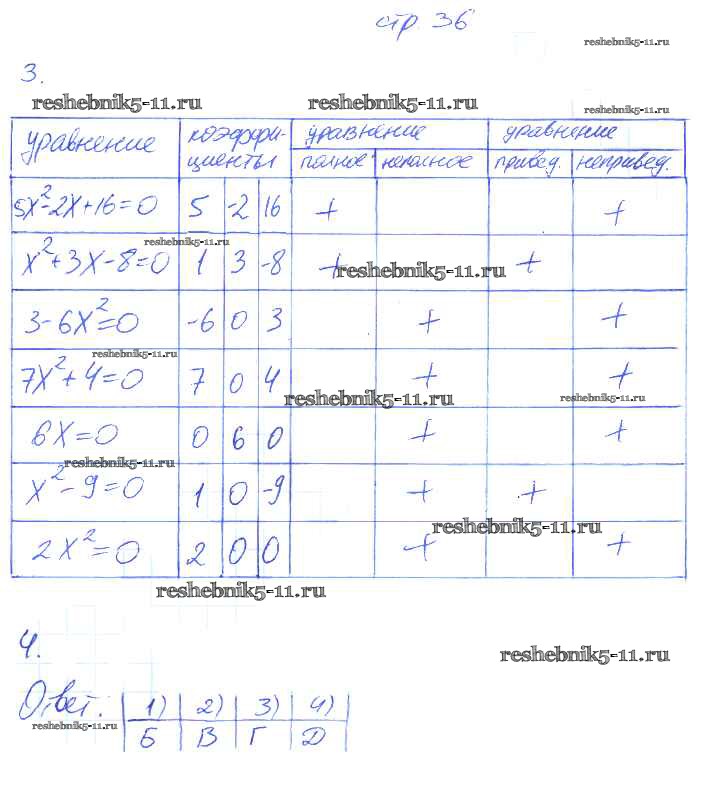 стр. 36
reshebnik5-11.ru
3.
reshebnik5-11.ru reshebnik5-11.ru reshebnik5-11.ru
уравнение коэффи- уравнение уравнение
циенты полное неполное привед. непривед.
5x²-2x+16=0 5 -2 16 + +
reshebnik5-11.ru
x²+3x-8=0 1 3 -8 + +
reshebnik5-11.ru
3-6x²=0 -6 0 3 + +
reshebnik5-11.ru
7x²+4=0 7 0 4 + +
reshebnik5-11.ru reshebnik5-11.ru
6x=0 0 6 0 + +
reshebnik5-11.ru
x²-9=0 1 0 -9 + +
reshebnik5-11.ru
2x²=0 2 0 0 + +
reshebnik5-11.ru
4.
reshebnik5-11.ru
Ответ: 1) 2) 3) 4)
reshebnik5-11.ru
Б В Г Д